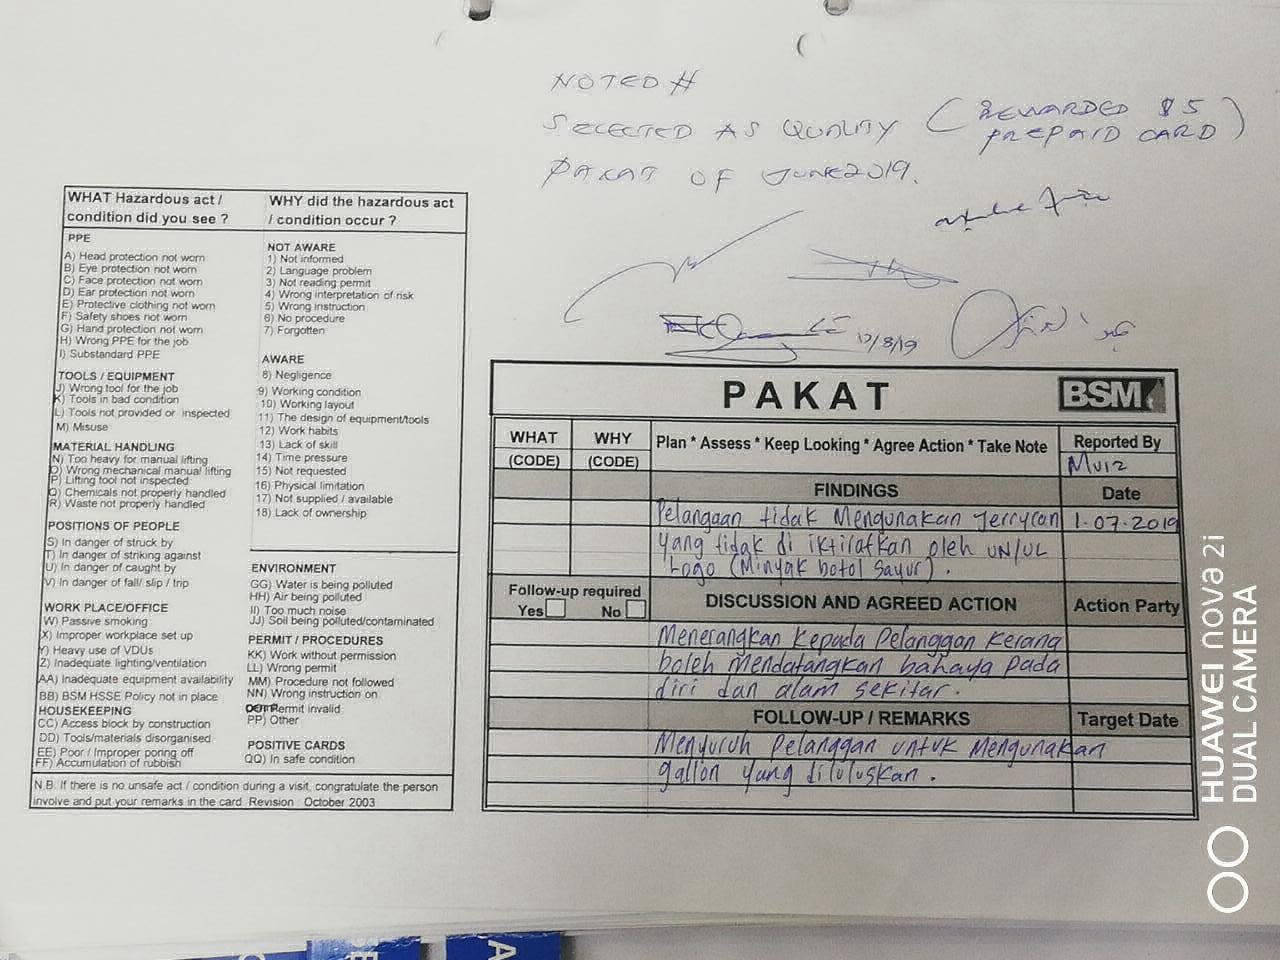 NOTED #
SELECTED AS QUALITY (REWARDED $5
PREPAID CARD)
PAKAT OF JUNE 2019.
12/8/19
WHAT Hazardous act /
condition did you see ?
PPE
A) Head protection not worn
B) Eye protection not worn
C) Face protection not worn
D) Ear protection not worn
E) Protective clothing not worn
F) Safety shoes not worn
G) Hand protection not worn
H) Wrong PPE for the job
I) Substandard PPE
TOOLS / EQUIPMENT
J) Wrong tool for the job
K) Tools in bad condition
L) Tools not provided or inspected
M) Misuse
MATERIAL HANDLING
N) Too heavy for manual lifting
O) Wrong mechanical manual lifting
P) Lifting tool not inspected
Q) Chemicals not properly handled
R) Waste not properly handled
POSITIONS OF PEOPLE
S) In danger of struck by
T) In danger of striking against
U) In danger of caught by
V) In danger of fall/ slip / trip
WORK PLACE/OFFICE
W) Passive smoking
X) Improper workplace set up
Y) Heavy use of VDUs
Z) Inadequate lighting/ventilation
AA) Inadequate equipment availability
BB) BSM HSSE Policy not in place
HOUSEKEEPING
CC) Access block by construction
DD) Tools/materials disorganised
EE) Poor / Improper poring off
FF) Accumulation of rubbish
WHY did the hazardous act
/ condition occur ?
NOT AWARE
1) Not informed
2) Language problem
3) Not reading permit
4) Wrong interpretation of risk
5) Wrong instruction
6) No procedure
7) Forgotten
AWARE
8) Negligence
9) Working condition
10) Working layout
11) The design of equipment/tools
12) Work habits
13) Lack of skill
14) Time pressure
15) Not requested
16) Physical limitation
17) Not supplied / available
18) Lack of ownership
ENVIRONMENT
GG) Water is being polluted
HH) Air being polluted
II) Too much noise
JJ) Soil being polluted/contaminated
PERMIT / PROCEDURES
KK) Work without permission
LL) Wrong permit
MM) Procedure not followed
NN) Wrong instruction on
Permit invalid
PP) Other
POSITIVE CARDS
QQ) In safe condition
N.B. If there is no unsafe act / condition during a visit, congratulate the person
involve and put your remarks in the card Revision October 2003
PAKAT
BSM
WHAT
(CODE)
WHY
(CODE)
Plan * Assess * Keep Looking * Agree Action * Take Note
Reported By
Muiz
FINDINGS
Date
Pelangaan tidak Mengunakan Jerrycan
1.07.2019
yang tidak di iktirafkan oleh UN/UL
Logo (Minyak botol sayur).
Follow-up required
Yes No
DISCUSSION AND AGREED ACTION
Action Party
Menerangkan kepada Pelanggan kerana
boleh mendatangkan bahaya pada
diri dan alam sekitar.
FOLLOW-UP / REMARKS
Target Date
Menyuruh Pelanggan untuk Mengunakan
gallon yang diluluskan.
HUAWEI nova 2i
DUAL CAMERA